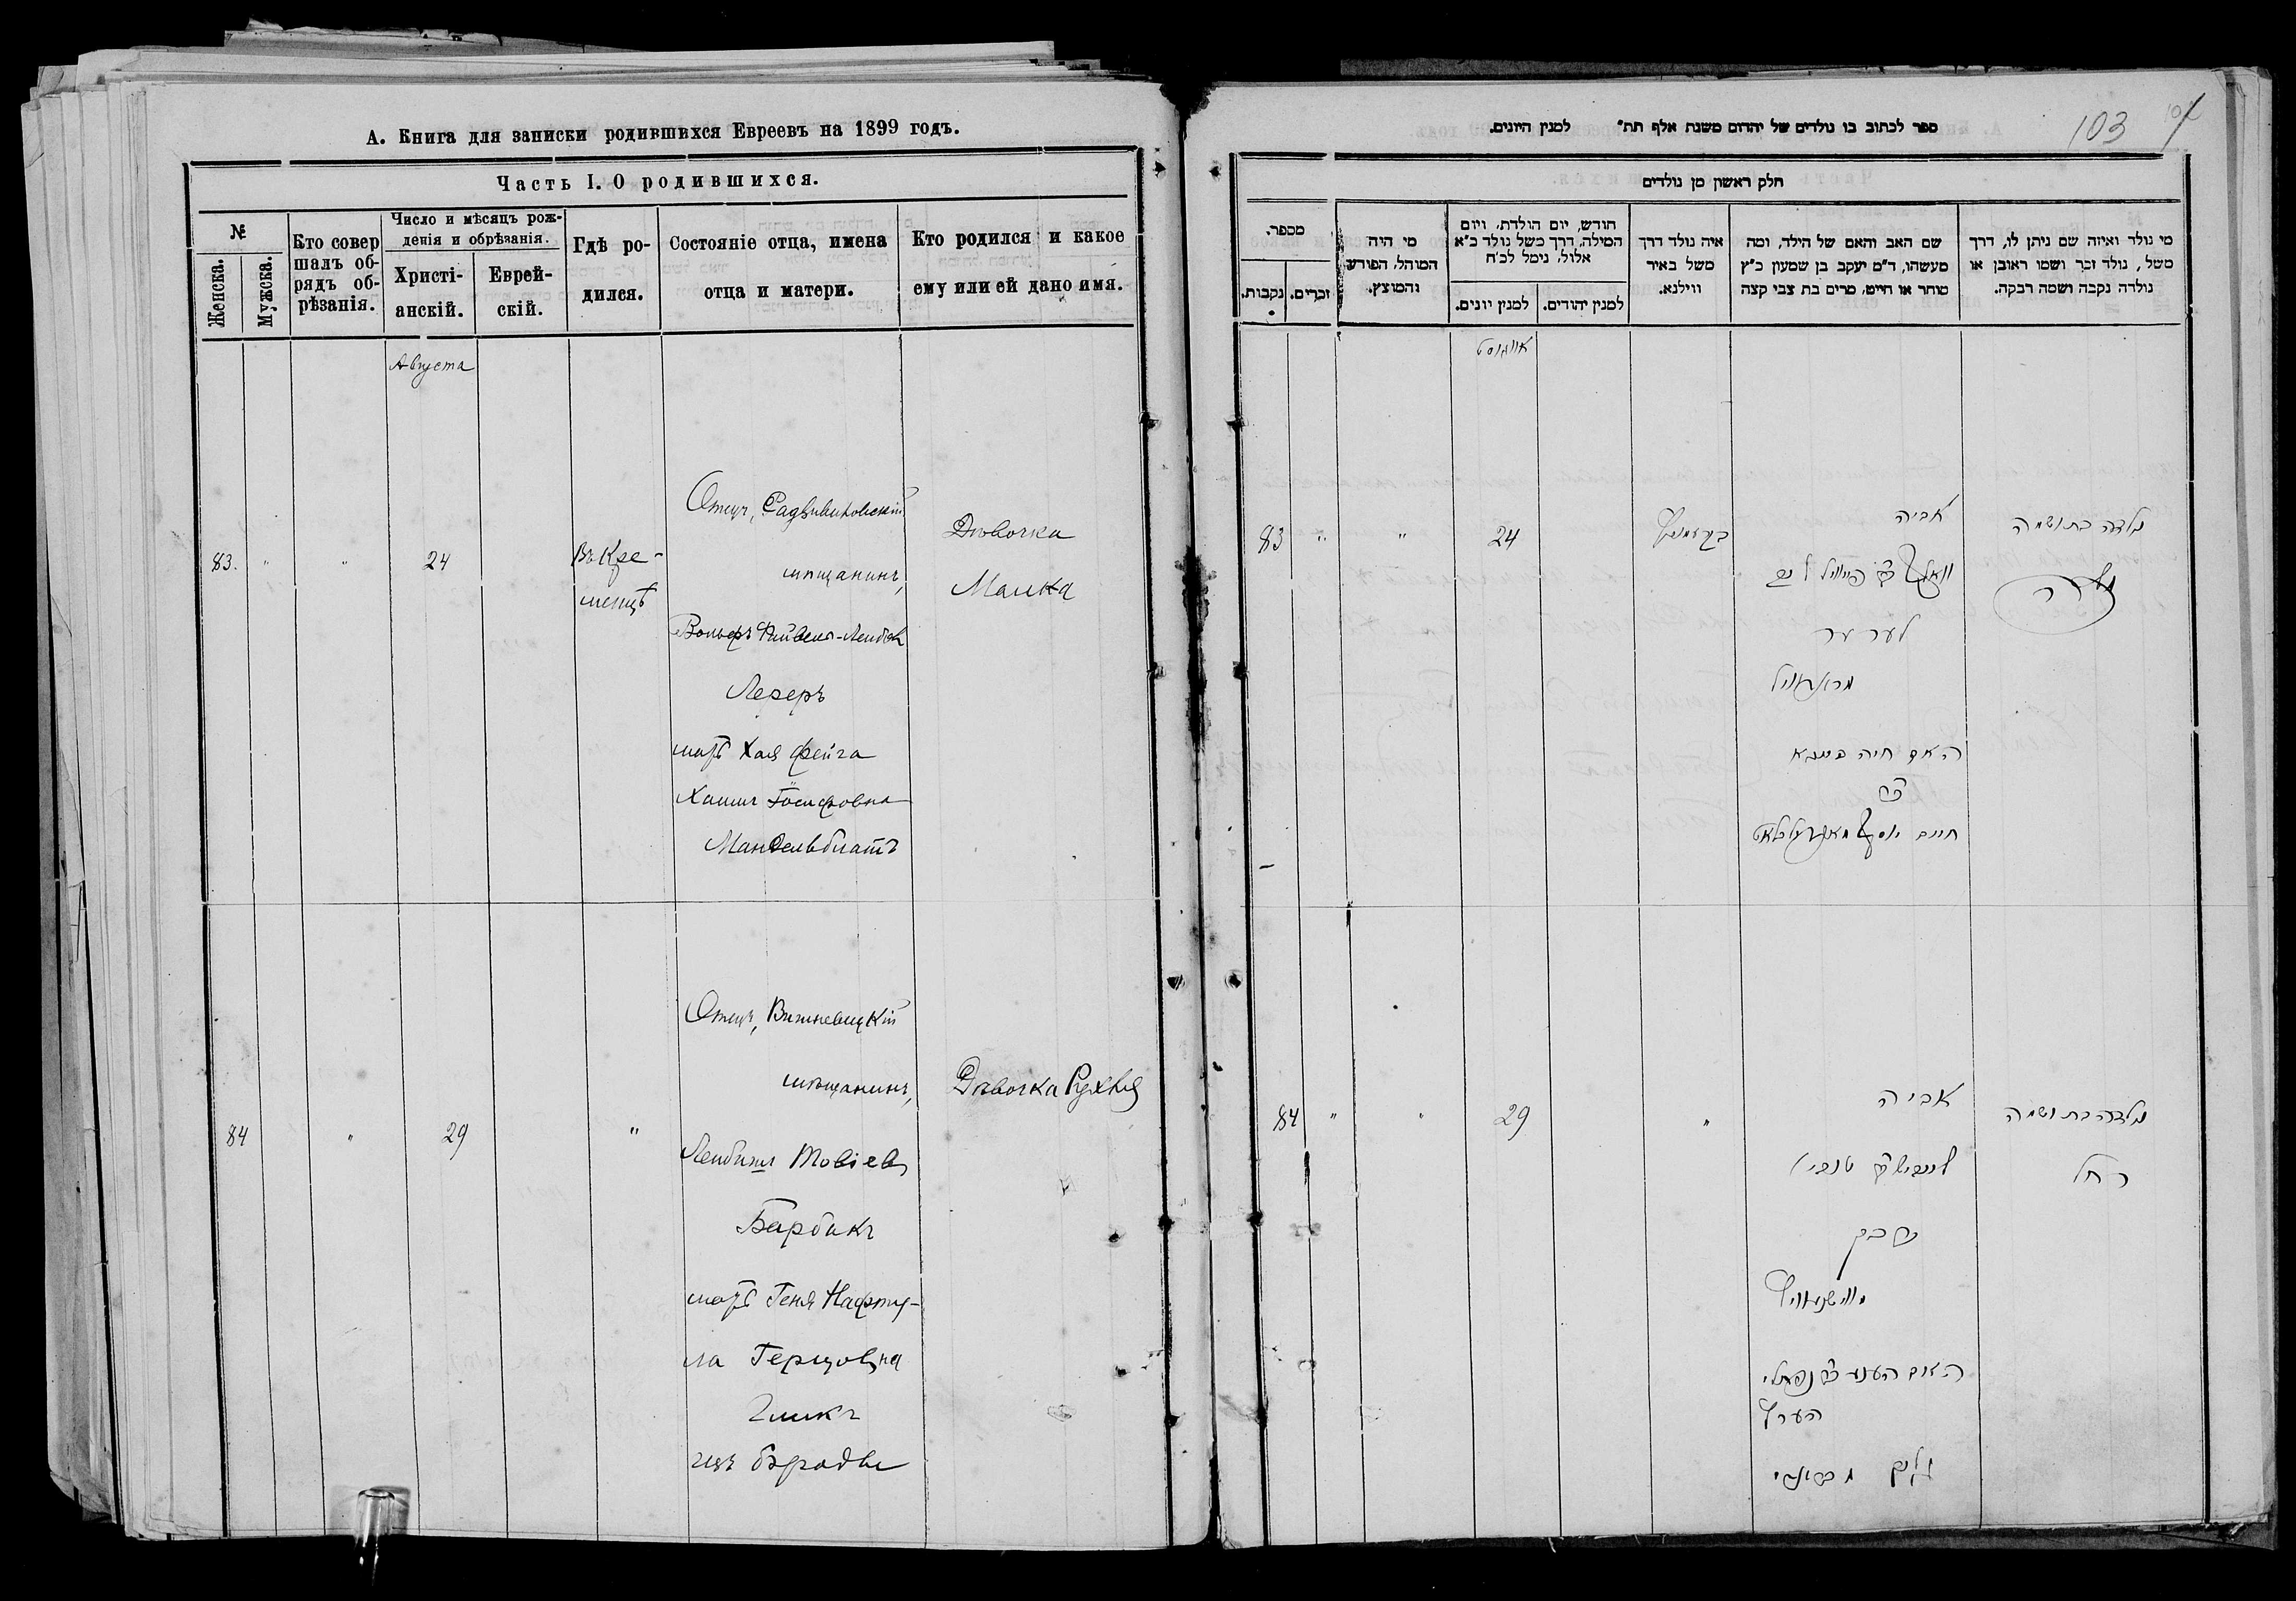 А. Книга для записки родившихся Евреевъ на 1899 годъ.
Часть I. О родившихся.
№
Женска.
Мужска.
Кто совер
шалъ об-
рядъ об-
рѣзанія.
Число и мѣсяцъ рож-
денія и обрѣзанія.
Христі-
анскій.
Еврей-
скій.
Гдѣ ро-
дился.
Состояніе отца, имена
отца и матери.
Кто родился и какое
ему или ей дано имя.
Августа
83.
"
"
24
Въ Кре-
менцѣ
Отецъ, Радзивиловскій
мѣщанинъ,
Вольфъ Файвель-Лейбов
Лереръ
мать Хая Фейга
Хаимъ Іосифовна
Мандельблатъ
Дѣвочка
Малка
84
"
29
"
Отецъ, Вишневецкій
мѣщанинъ,
Лейбишъ Товіев
Барбакъ
мать Геня Нафту-
ла Герцовна
Гликъ
изъ бъродъ
Дѣвочка Рухля
103
ספר לכתוב בו נולדים של יהדום משנת אלף תת" למנין היונים.
חלק ראשון מן נולדים
מספר.
נקבות.
זכרים.
מי היה
המוהל, הפורע
והמוצץ.
חודש, יום הולדת, ויום
המילה, דרך משל נולד כ"א
אלול, נימל לכ"ח
למנין יונים.
למנין יהודים.
איה נולד דרך
משל באיר
ווילנא.
שם האב והאם של הילד, ומה
מעשהו, ד"מ יעקב בן שמעון כ"ץ
סוחר או חייט, מרים בת צבי קצה
מי נולד ואיזה שם ניתן לו, דרך
משל, נולד זכר ושמו ראובן או
נולדה נקבה ושמה רבקה.
אויגוסט
83
"
"
24
בקרמניץ
אביה
לערער
האם חיה פייגא
חיים יוסף מאנדעלבלאט
נולדה בת ושמה
מלכה
84
"
"
29
"
אביה
ווישניוויץ
הערץ
גליק
נולדה בת ושמה
רחל